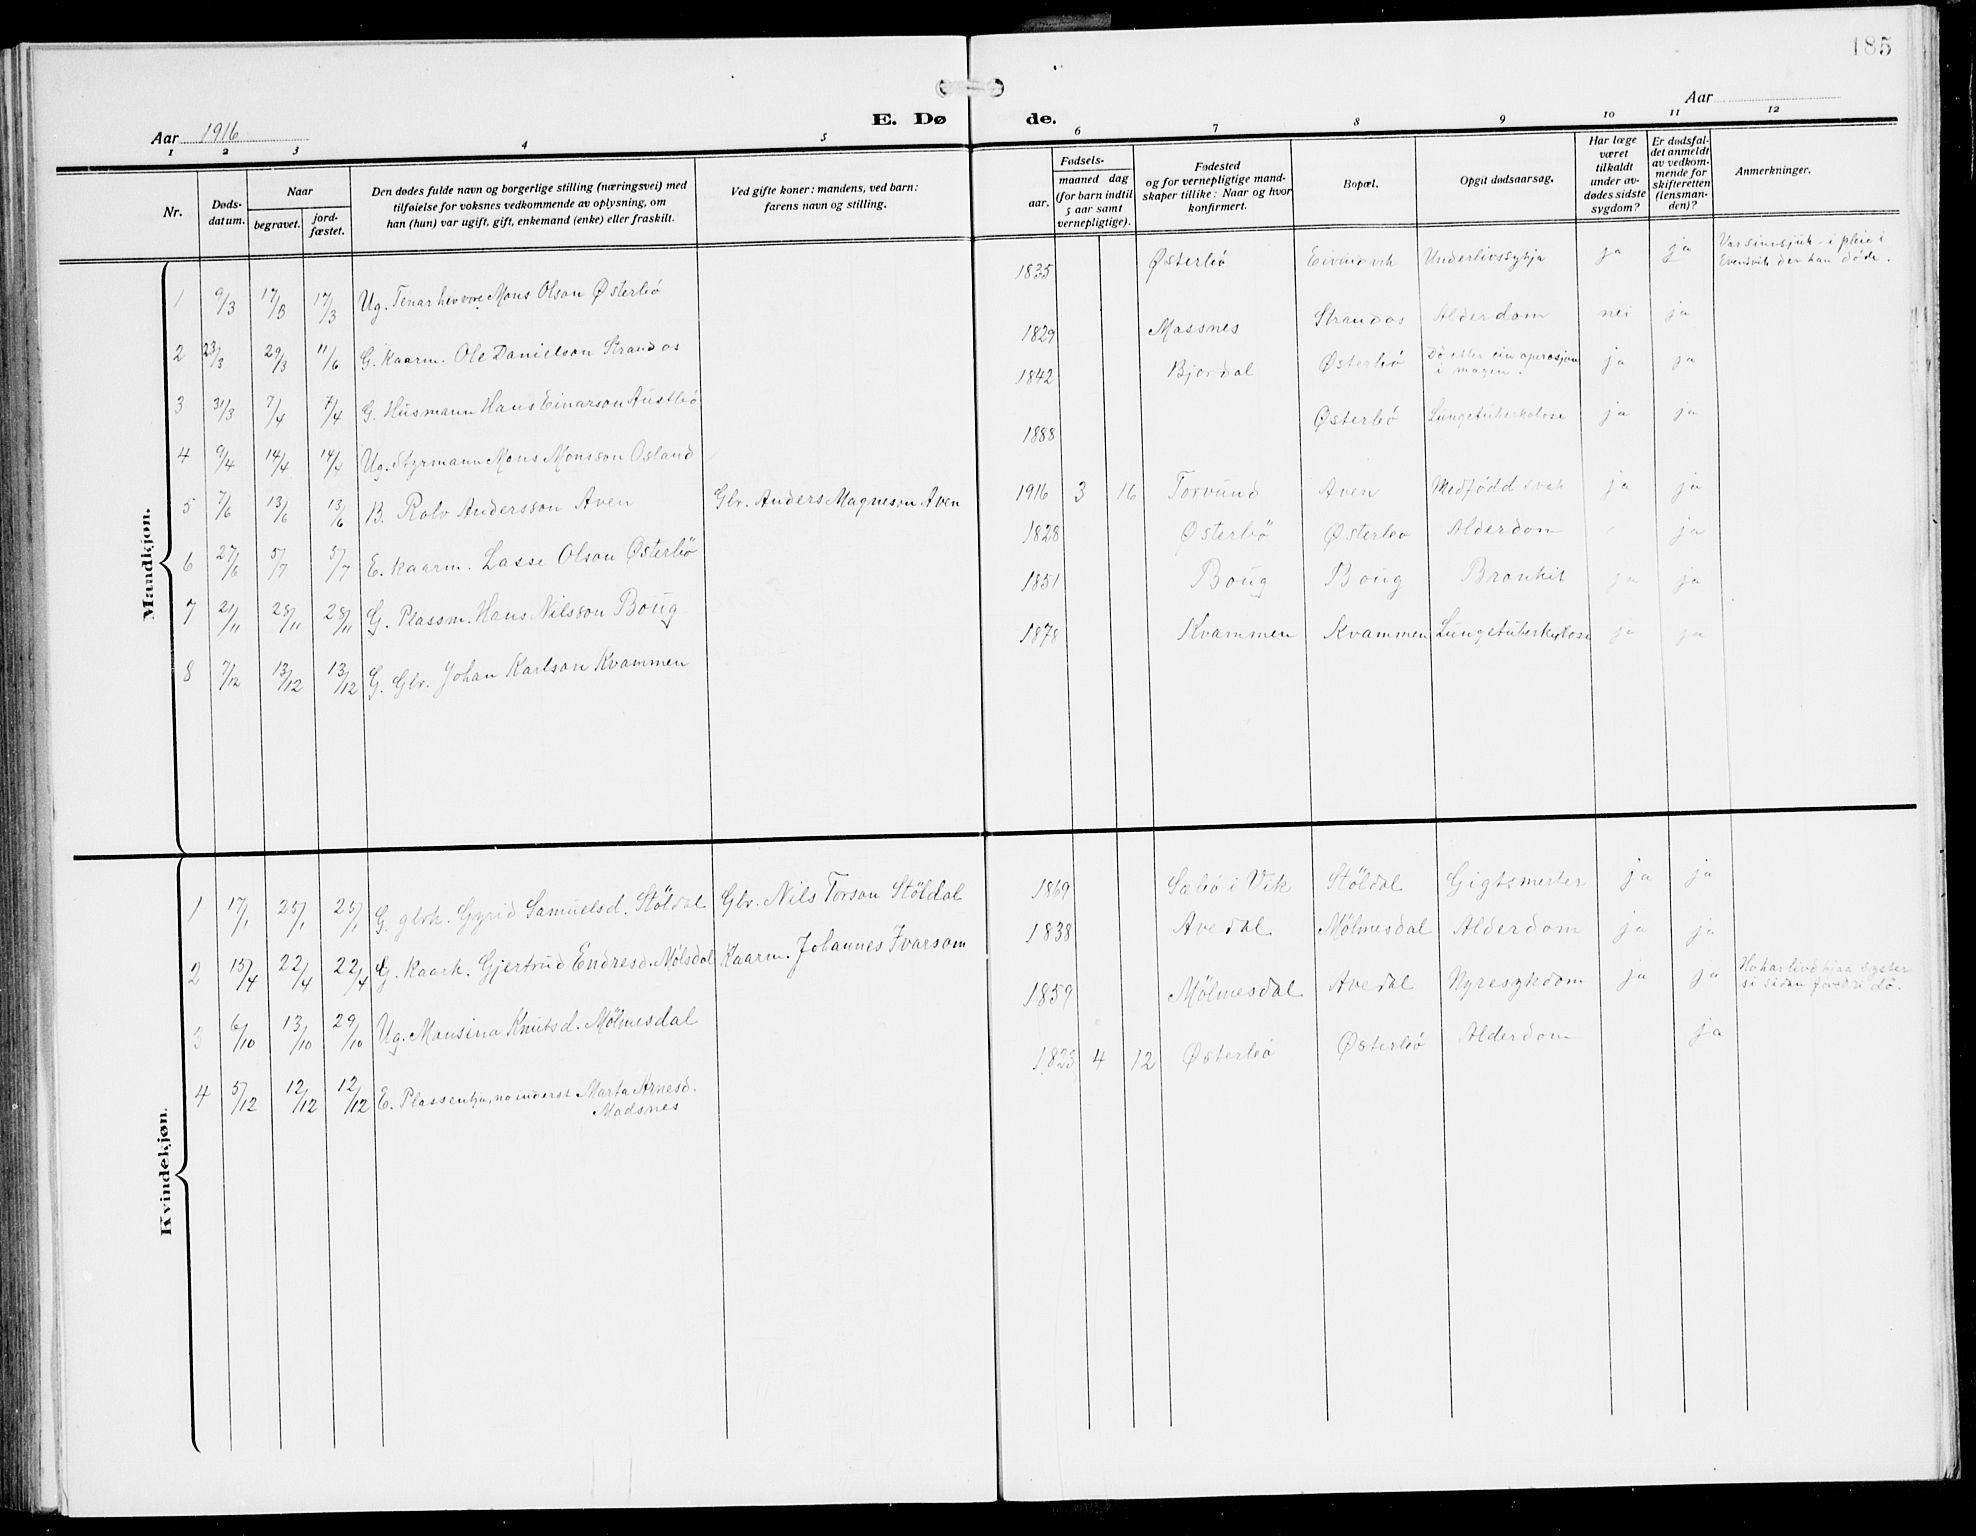 185
Aar 1916
E. Dø de.
Aar
1 2 3 4 5 6 7 8 9 10 11 12
Nr.
Døds-
datum.
Naar
begravet.
jord-
fæstet.
Den dødes fulde navn og borgerlige stilling (næringsvei) med
tilføielse for voksnes vedkommende av oplysning, om
han (hun) var ugift, gift, enkemand (enke) eller fraskilt.
Ved gifte koner: mandens, ved barn:
farens navn og stilling.
Fødsels-
aar.
maaned dag
(for barn indtil
5 aar samt
vernepligtige).
Fødested
og for vernepligtige mand-
skaper tillike: Naar og hvor
konfirmert.
Bopæl.
Opgit dødsaarsag.
Har læge
været
tilkaldt
under av-
dødes sidste
sygdom?
Er dødsfal-
det anmeldt
av vedkom-
mende for
skifteretten
(lensman-
den)?
Anmerkninger.
Mandkjøn.
1 9/3 17/3 17/3 Ug. Tenar hev vore Mons Olson Østerbö 1835 Østerbö Eivindvik Underlivssykja ja ja Var sinnsjuk - i pleie i
Evensvik der han døde.
2 23/3 29/3 11/6 G. Kaarm. Ole Danielson Strandos 1829 Massnes Strandos Alderdom nei ja
3 31/3 7/4 7/4 G. Husmann Hans Einarson Austbö 1842 Bjordal Østerbö Dö etter ein operasjon
i magen. ja ja
4 9/4 14/4 14/4 Ug. Styrmann Mons Monsson Osland 1888 Østerbö Lungetuberkolose ja ja
5 7/6 13/6 13/6 B. Rolv Andersson Aven Gbr. Anders Magneson Aven 1916 3 16 Torvund Aven Medfödd svak ja ja
6 27/6 5/7 5/7 E. Kaarm. Lasse Olson Østerbö 1828 Østerbö Østerbo Alderdom - ja
7 21/11 28/11 28/11 G. Plassm. Hans Nilsson Boug 1851 Boug Boug Bronkit ja ja
8 7/12 13/12 13/12 G. Gbr. Johan Karlson Kvammen 1878 Kvammen Kvammen Lungetuberkulose ja ja
Kvindekjøn.
1 17/1 25/1 25/1 G. gbrk. Gyrid Samuelsd. Stöldal Gbr. Nils Torson Stöldal 1869 Sæbö i Vik Stöldal Gigtsmerter ja ja
2 15/4 22/4 22/4 G. Kaark. Gjertrud Endresd. Mølsdal Kaarm. Johannes Ivarsom 1838 Avedal Mølmesdal Alderdom ja ja
3 6/10 13/10 29/10 Ug. Monsina Knutsd. Mølmesdal 1859 Mølmesdal Avedal Nyresykdom ja ja Ho har livd hjaa syster
si sidan foreldri dö.
4 5/12 12/12 12/12 E. Plassenkja, no inderst Marta Arnesd.
Madsnes 1823 4 12 Østerbö Østerbö Alderdom ja